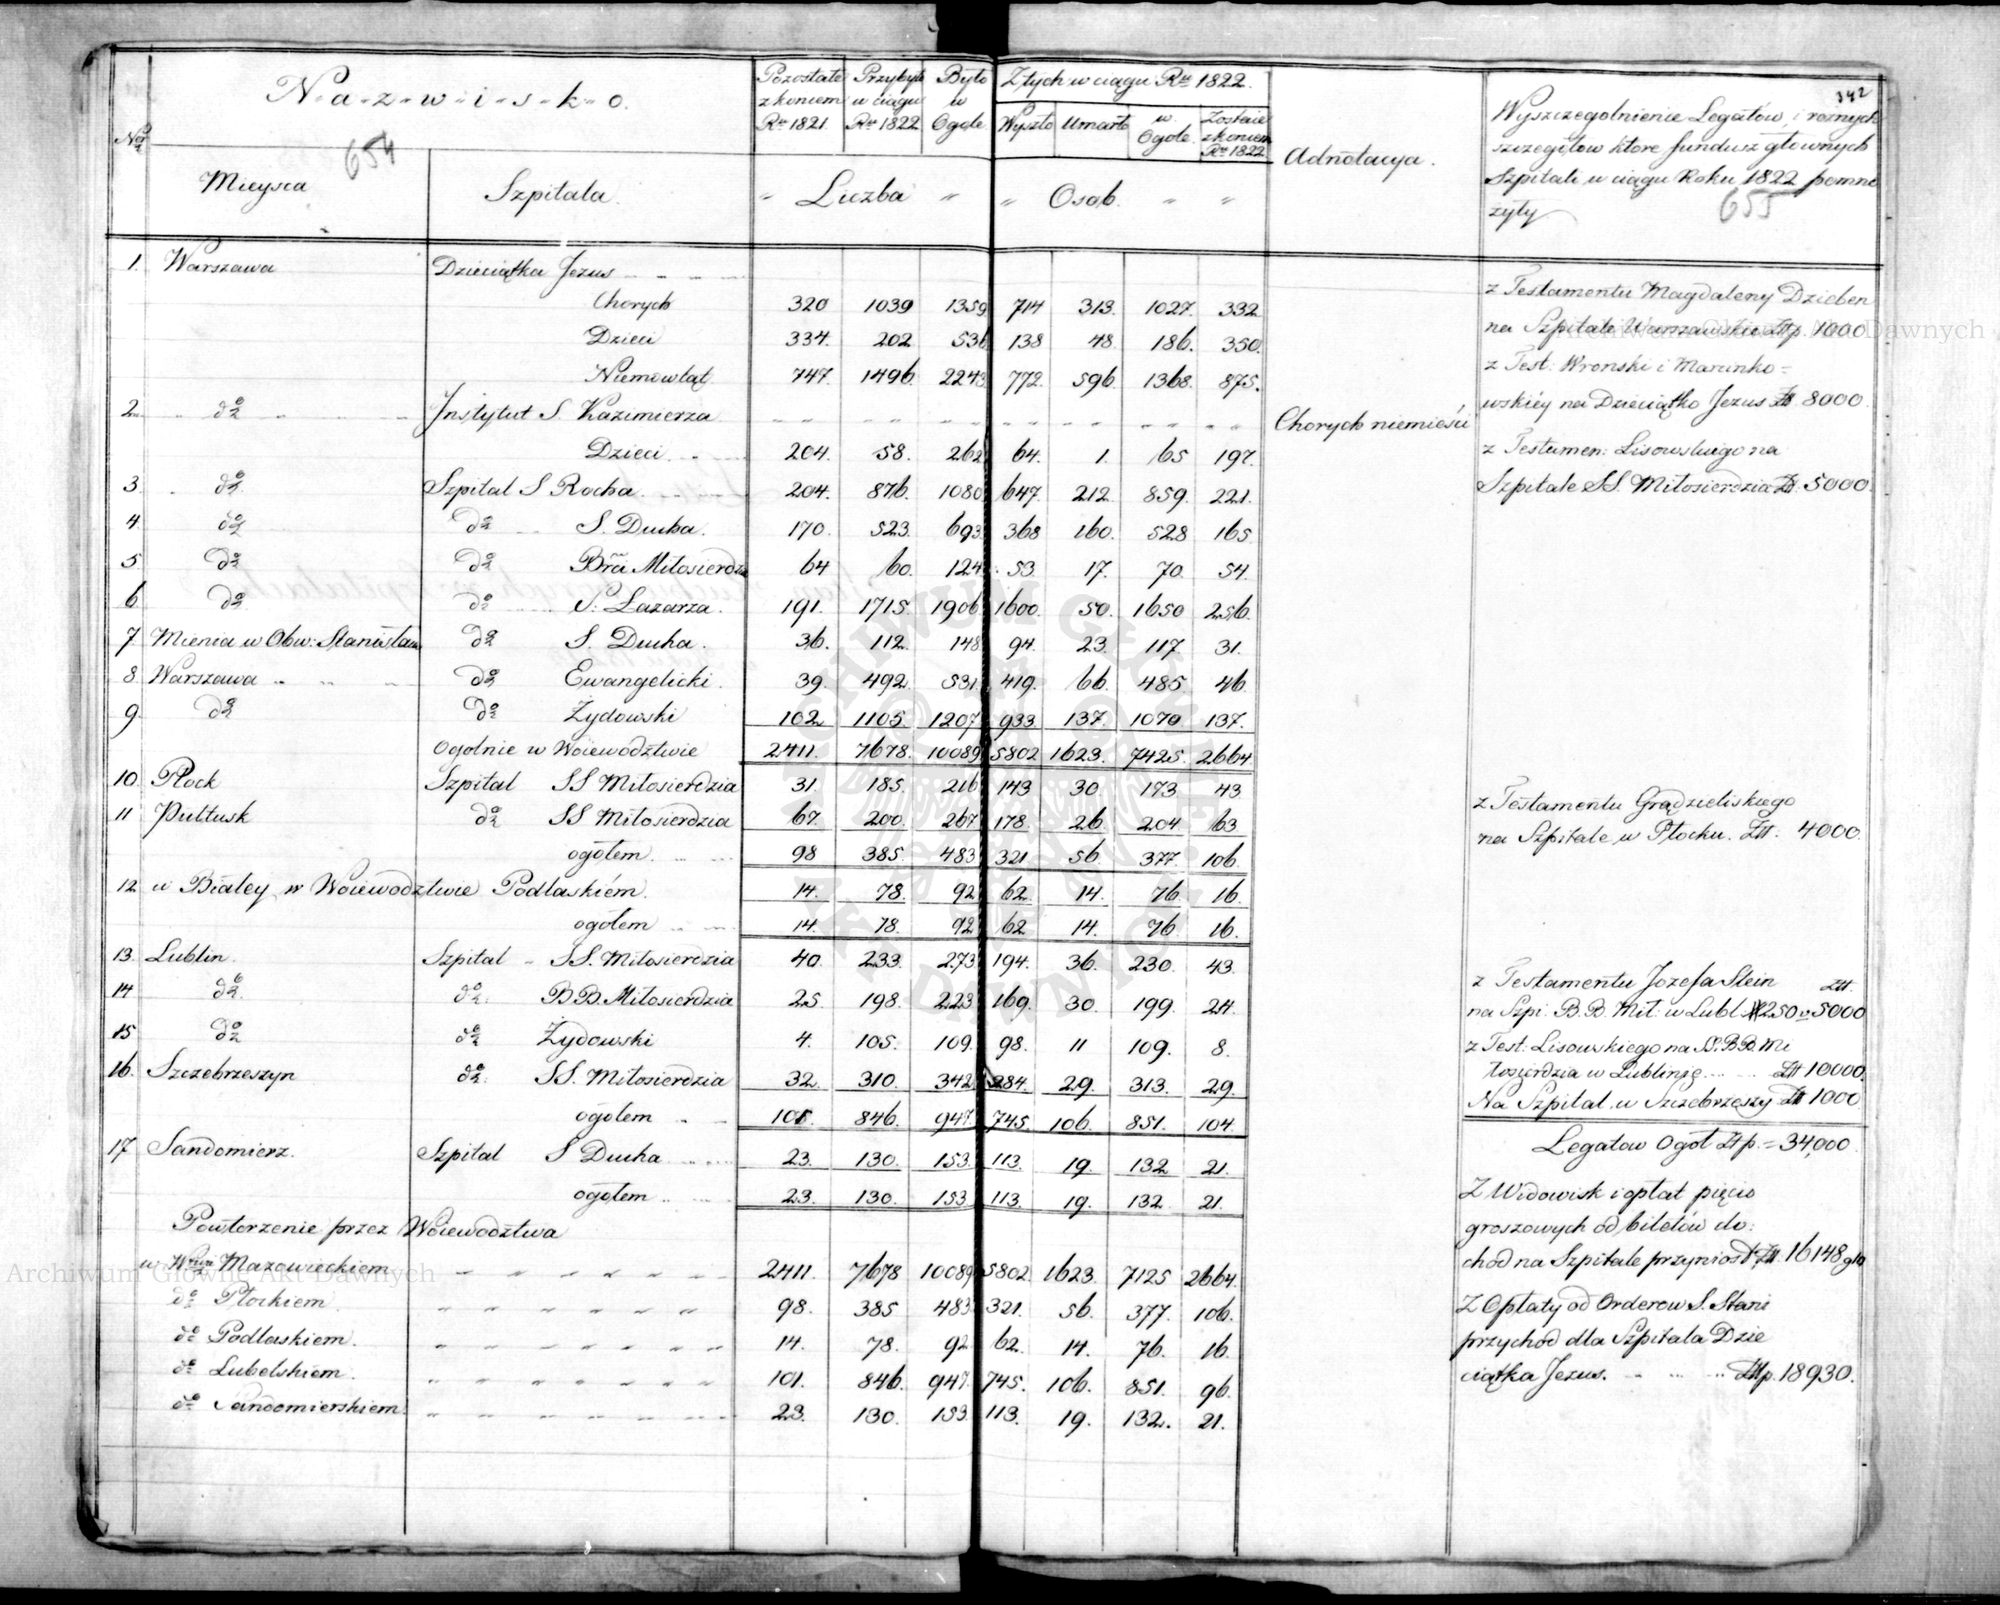 342
N-a-z-w-i-s-k-o.
Pozostało z koniem Rku 1821.
Przybyło w ciągu Rku 1822
Było w Ogole
Z tych w ciągu Rku 1822.
Wyszło Umarło w Ogole. Zostaie z koniem Rku 1822
Adnotacya.
Wyszczegolnienie Legatów, i roznych
szczegółow ktore fundusz głownych
Szpitali w ciągu Roku 1822 pomno
żyły
654
655
Nro Mieysca Szpitala. " Liczba " " Osob. " "
1. Warszawa Dzieciątka Jezus
Chorych 320 1039 1359 714 313. 1027. 332
Dzieci 334. 202 536 138 48. 186. 350.
Niemowląt. 747. 1496. 2243 772. 596. 1368. 875.
2. do Instytut S. Kazimierza Chorych niemieści
Dzieci 204. 58. 262 64. 1. 65 197.
3. do Szpital S Rocha. 204. 876. 1080 647. 212 859. 221.
4. do do S. Ducha. 170. 523. 693. 368 160. 528 165.
5 do do Bra Miłosierdzia 64 60. 124. 53 17. 70. 54.
6. do do S. Lazarza. 191. 1715. 1906 1600. 50. 1650 256.
7. Mienia w Obw: Stanisław do S. Ducha. 36. 112. 148 94. 23. 117 31.
8. Warszawa do Ewangelicki. 39. 492. 531. 419. 66. 485. 46.
9. do do Żydowski 102 1105. 1207 933 137. 1070 137.
Ogolnie w Woiewodztwie 2411. 7678. 10089 5802 1623. 7425. 2664.
10. Płock Szpital SS Miłosierdzia 31. 185. 216 143 30. 173 43
11 Pułtusk do SS Miłosierdzia 67. 200. 267 178 26 204 63
ogołem. 98 385. 483 321. 56. 377. 106.
12 w Białey w Woiewodztwie Podlaskiém. 14. 78. 92 62 14. 76 16
ogołem 14. 78. 92 62 14. 76. 16.
13. Lublin. Szpital SS. Miłosierdzia 40. 233. 273 194. 36. 230. 43.
14 do do BB. Miłosierdzia 25. 198. 223 169. 30. 199. 24.
15 do do Żydowski 4. 105. 109. 98. 11 109. 8.
16. Szczebrzeszyn do SS. Miłosierdzia 32. 310. 342 284. 29. 313. 29.
ogołem 101. 846. 947. 745. 106. 851. 104.
17. Sandomierz. Szpital S Ducha 23. 130. 153. 113. 19. 132 21.
ogołem 23. 130. 153 113. 19. 132. 21.
Powtorzenie przez Woiewodztwa
w Wwie Mazowieckiem 2411. 7678 10089 5802 1623. 7125 2664.
do Płockiem 98. 385 483 321. 56. 377. 106.
do Podlaskiem. 14. 78. 92 62. 14. 76. 16.
do Lubelskiem. 101. 846. 947. 745. 106. 851. 96.
do Sandomierskiem. 23. 130. 153. 113. 19. 132. 21.
z Testamentu Magdaleny Dzieben
na Szpitale Warszawskie Złtp. 1000
z Test: Wronski i Marinko=
wskiéy na Dzieciątko Jezus Zł 8000.
z Testamen: Lisowskiego na
Szpitale SS. Miłosierdzia Zł. 5000.
z Testamentu Grądzieliskiego
na Szpitale w Płocku. Złt: 4000.
z Testamentu Jozefa Stein Złt.
na Szpi: B.B. Mił: w Lubl #250 5000
z Test: Lisowskiego na SS. B.B. Mi
łosierdzia w Lublinie Złt 10000.
Na Szpital w Szczebrzeszy Zł 1000
Legatow Ogoł Złtp. = 34,000
Z Widowisk i opłat pięcio
groszowych od biletów do:
chod na Szpitale przyniosł Złt. 16148 g10
Z Opłaty od Orderow S. Stani
przychod dla Szpitala Dzie
ciątka Jezus. Złtp. 18930.
Archiwum Główne Akt Dawnych
Archiwum Główne Akt Dawnych